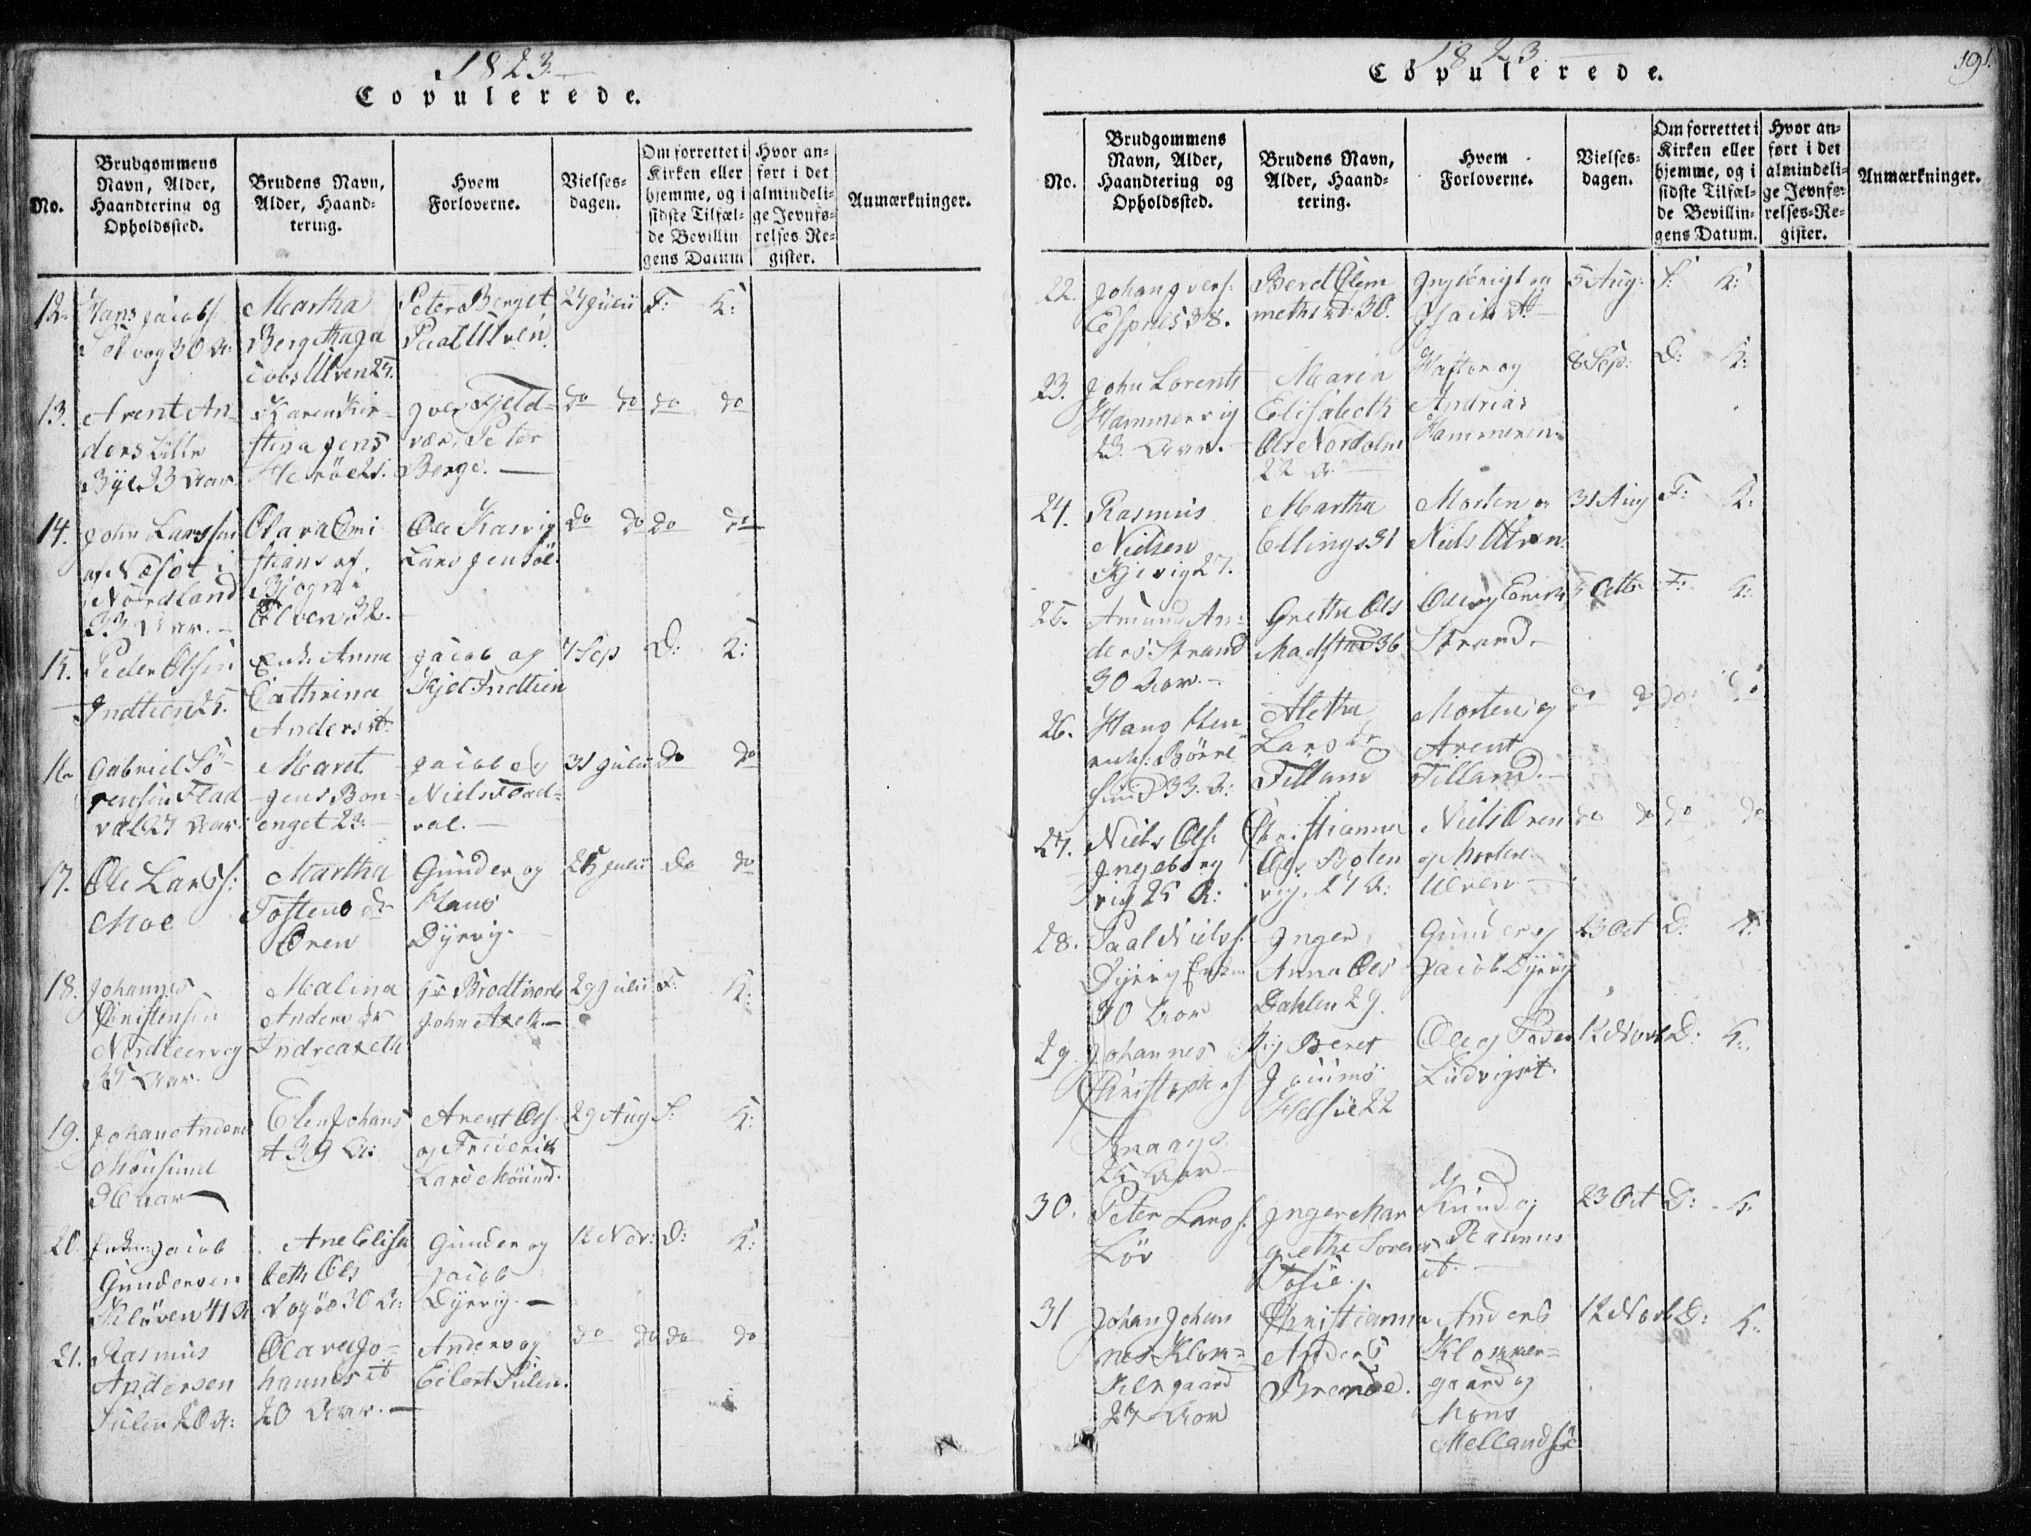 1823.
Copulerede.
No.
Brudgommens
Navn, Alder,
Haandtering og
Opholdssted.
Brudens Navn,
Alder, Haand-
tering.
Hvem
Forloverne.
Vielses-
dagen.
Om forrettet i
Kirken eller
hjemme, og i
sidste Tilfæl-
de Bevillin
gens Datum
Hvor an-
ført i det
almindeli-
ge Jevnfø-
relses Re-
gister.
Anmærkninger.
12. Hans Jacobs
30 A:
Martha
Berghaga
cobs Ulven 25.
Peter Berget
Paal Ulven
24 Julii F: K:
13. Arent An-
ders Lille
23 Aar
Karen Kir-
stina Jens
Iver Fjeld-
vær, Peter
Berge. —
do do do do
14. John Larssen
af Næsøt i
Nordland
33 Aar. —
Olava
stians af
Elven 32. —
Ole Kasvig
Lars Jensöe
do do do do
15. Peder Olsen
Indtian 25.
Enke Anna
Cathrina
Anders it
Jacob og
Kjel Indtian
7 Sep D: K:
16 Gabriel Sö-
rensen Flad
val 27 Aar
Maret
Jens Bon-
enget 23 —
Jacob og
Niels Flad-
val. —
31 Julii do do
17. Ole Larss:
Moe
Martha
Tostens dr
Oren
Gunder og
Hans
Dyrvig.
25 Julii do do
18. Johannes
Christensen
Nordleervg
35 Aar.
Malina
Anders dr
Indreaxeth
John Axeth —
29 Julii F: K:
19. Johan Anders
Mousund
Aar
Elen Johans
it 39 A:
Arent Ols.
og Friderik
Lars Möund.
29 Aug F: K:
20. Enkem Jacob
Gundersen
Kløven 41 A
Ane Elisa
beth Ols
Vogöe 30 A:
Gunder og
Jacob
Dyrvig. —
12 Nov: D: K:
21. Rasmus
Andersen
Sulen 20 A:
Olava Jo-
hannes it
20 Aar. —
Anders og
Eilert Sulen.
do do do do
1823
Copulerede.
191.
No.
Brudgommens
Navn, Alder,
Haandtering og
Opholdssted.
Brudens Navn,
Alder, Haand-
tering.
Hvem
Forloverne.
Vielses-
dagen.
Om forrettet i
Kirken eller
hjemme, og i
sidste Tilfæl-
de Bevillin-
gens Datum.
Hvor an-
ført i det
almindeli-
ge Jevnfø-
relses-Re-
gister.
Anmærkninger.
22. Johan Ivers:
Espnes 38.
Beret Clem
meths it: 30.
og
Isach it —
5 Aug: F: K:
23. John Lorents
Hammervig
23. Aar. —
Maria
Elisabeth
Ols Nordolm
22 A. —
Haftor og
Andrias
Hammeren
8 Sep: D: K:
24. Rasmus
Nielsen
Kjervig 27.
Martha
Ellings 31
Morten og
Niels Ulven
31 Aug F: K:
25. Amund An-
ders: Strand
30 Aar. —
Grethe Ols
Madstad 36
Ole og
Strand. —
5 Octb: F: K:
26. Hans Hen
richs: Börre
sund 33. A:
Aletha
Lars dr
Tilland
Morten og
Arent
Tilland. —
do do do do
27. Niels Ols:
Ingeborg
vig 25 A:
Christianna
Ols Boten
vig. 27 A:
Niels Oren
og Morten
Ulven —
do do do do
28. Paal Niels:
Dyrvig Enkem
30 Aar
Inger
Anna Ols
Dahlen 29.
Gunder og
Jacob Dyrvig
23 Oct D: K:
29. Johannes
Christophers
25 Aar —
Pig Beret
Joums
Helsöe 22
Ole og Peder
Ludvigs it.
12 Novb D: K:
30. Peter Lars:
Löv
Inger Mar
grethe Sorens
Tosöe.
Knud og
Rasmus
it. —
23 Oct D: K:
31 Johan Johan
nes Klom-
mengaard
27 Aar
Christianna
Anders
Anders
Klommen-
gaard og
Mons
Mellandsöe
12 Novb D: K: